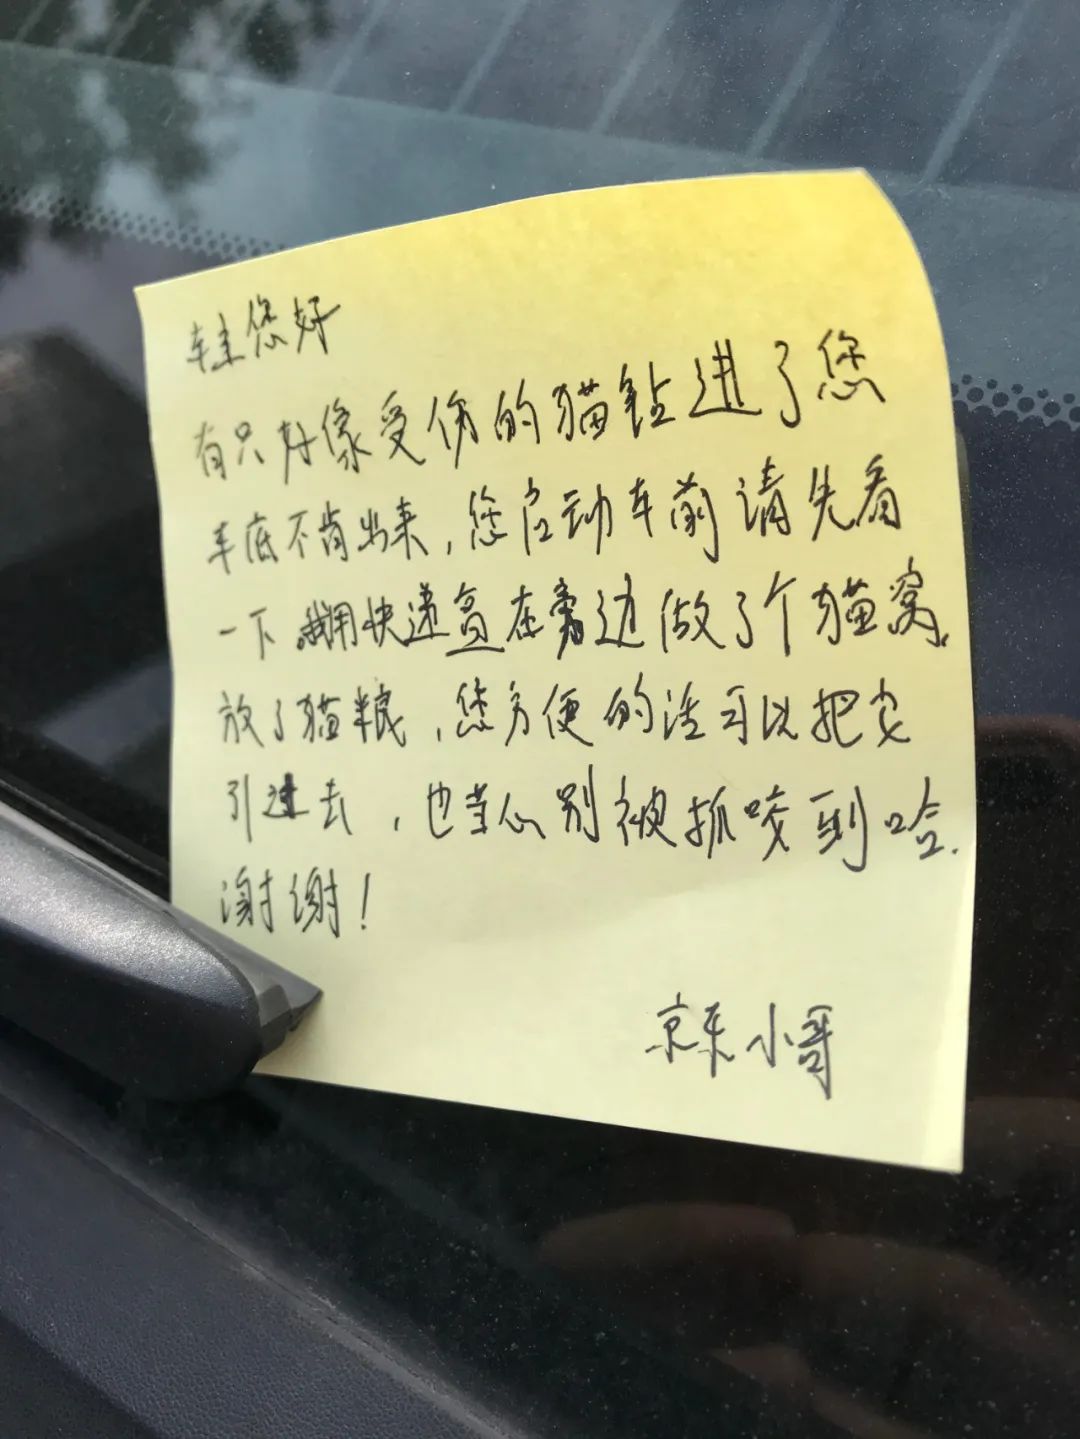 车主您好
有只好像受伤的猫钻进了您
车底不肯出来，您启动车前请先看
一下。我用快递盒在旁边做了个猫窝，
放了猫粮，您方便的话可以把它
引过去，也当心别被抓咬到哈．
谢谢！
京东小哥